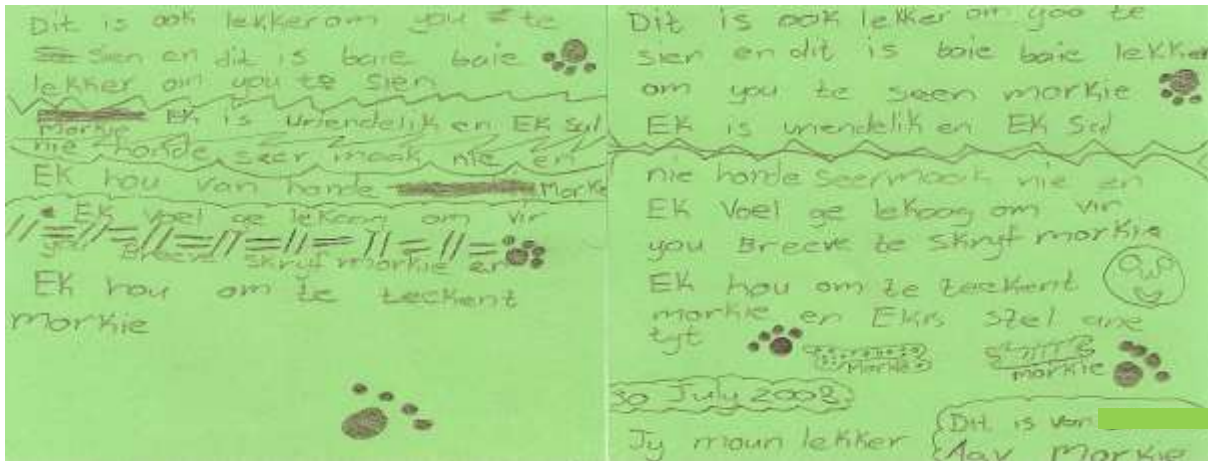 Dit is ook lekker om you te
sien en dit is baie baie
lekker om you te sien
Morkie EK is vriendelik en EK Sul
nie honde seer maak nie en
EK hou van honde Morkie
EK voel ge lekoog om vir
you Breeve Skryf morkie en
EK hou om te teckent
morkie
Dit is ook lekker om yoo te
sien en dit is baie baie lekker
om you te sieen morkie
EK is vriendelik en EK Sul
nie honde seermaak nie en
EK Voel ge lekoog om vir
you Breeve te Skryf morkie
EK hou om te teekent
morkie en EKis stel ane
tyt
Morkie
morkie
30 July 2008
Jy moun lekker
Dit is van
Morkie